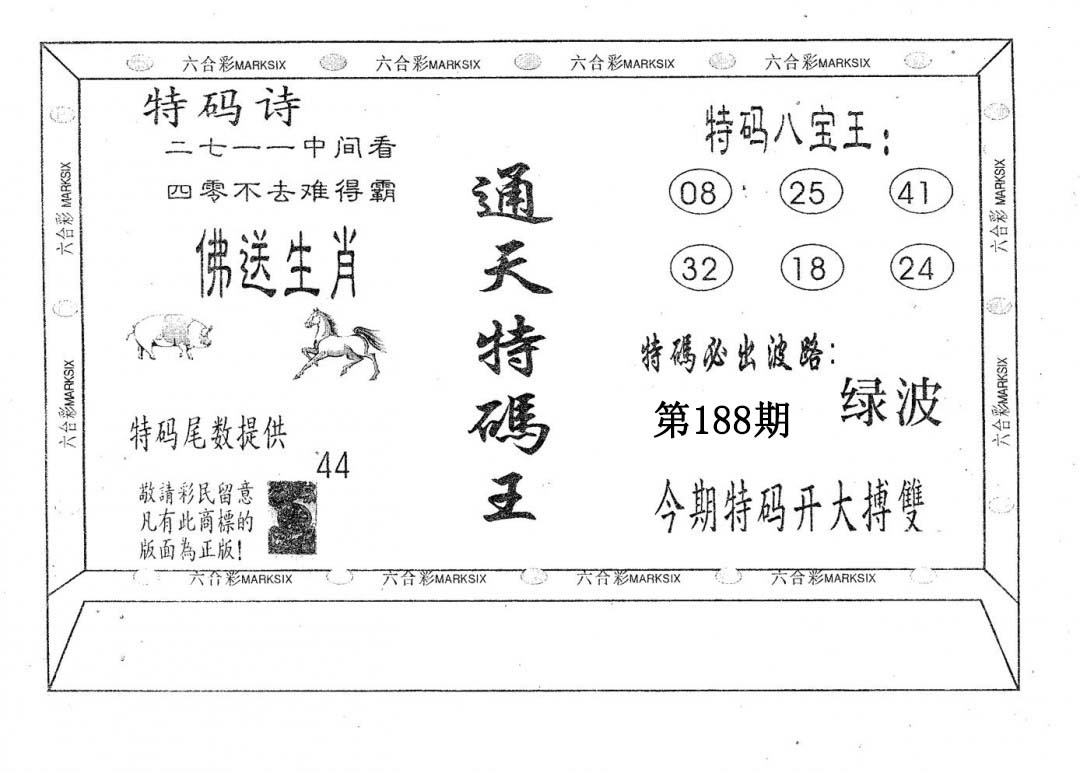 六合彩MARKSIX 六合彩MARKSIX 六合彩MARKSIX 六合彩MARKSIX
六合彩 MARKSIX
六合彩MARKSIX
特码诗
二七一一中间看
四零不去难得霸
佛送生肖
特码尾数提供
44
敬請彩民留意
凡有此商標的
版面為正版!
通天特碼王
特码八宝王:
08 25 41
32 18 24
特碼必出波路:
绿波
第188期
今期特码开大搏雙
六合彩 MARKSIX
六合彩MARKSIX
六合彩MARKSIX 六合彩MARKSIX 六合彩MARKSIX 六合彩MARKSIX